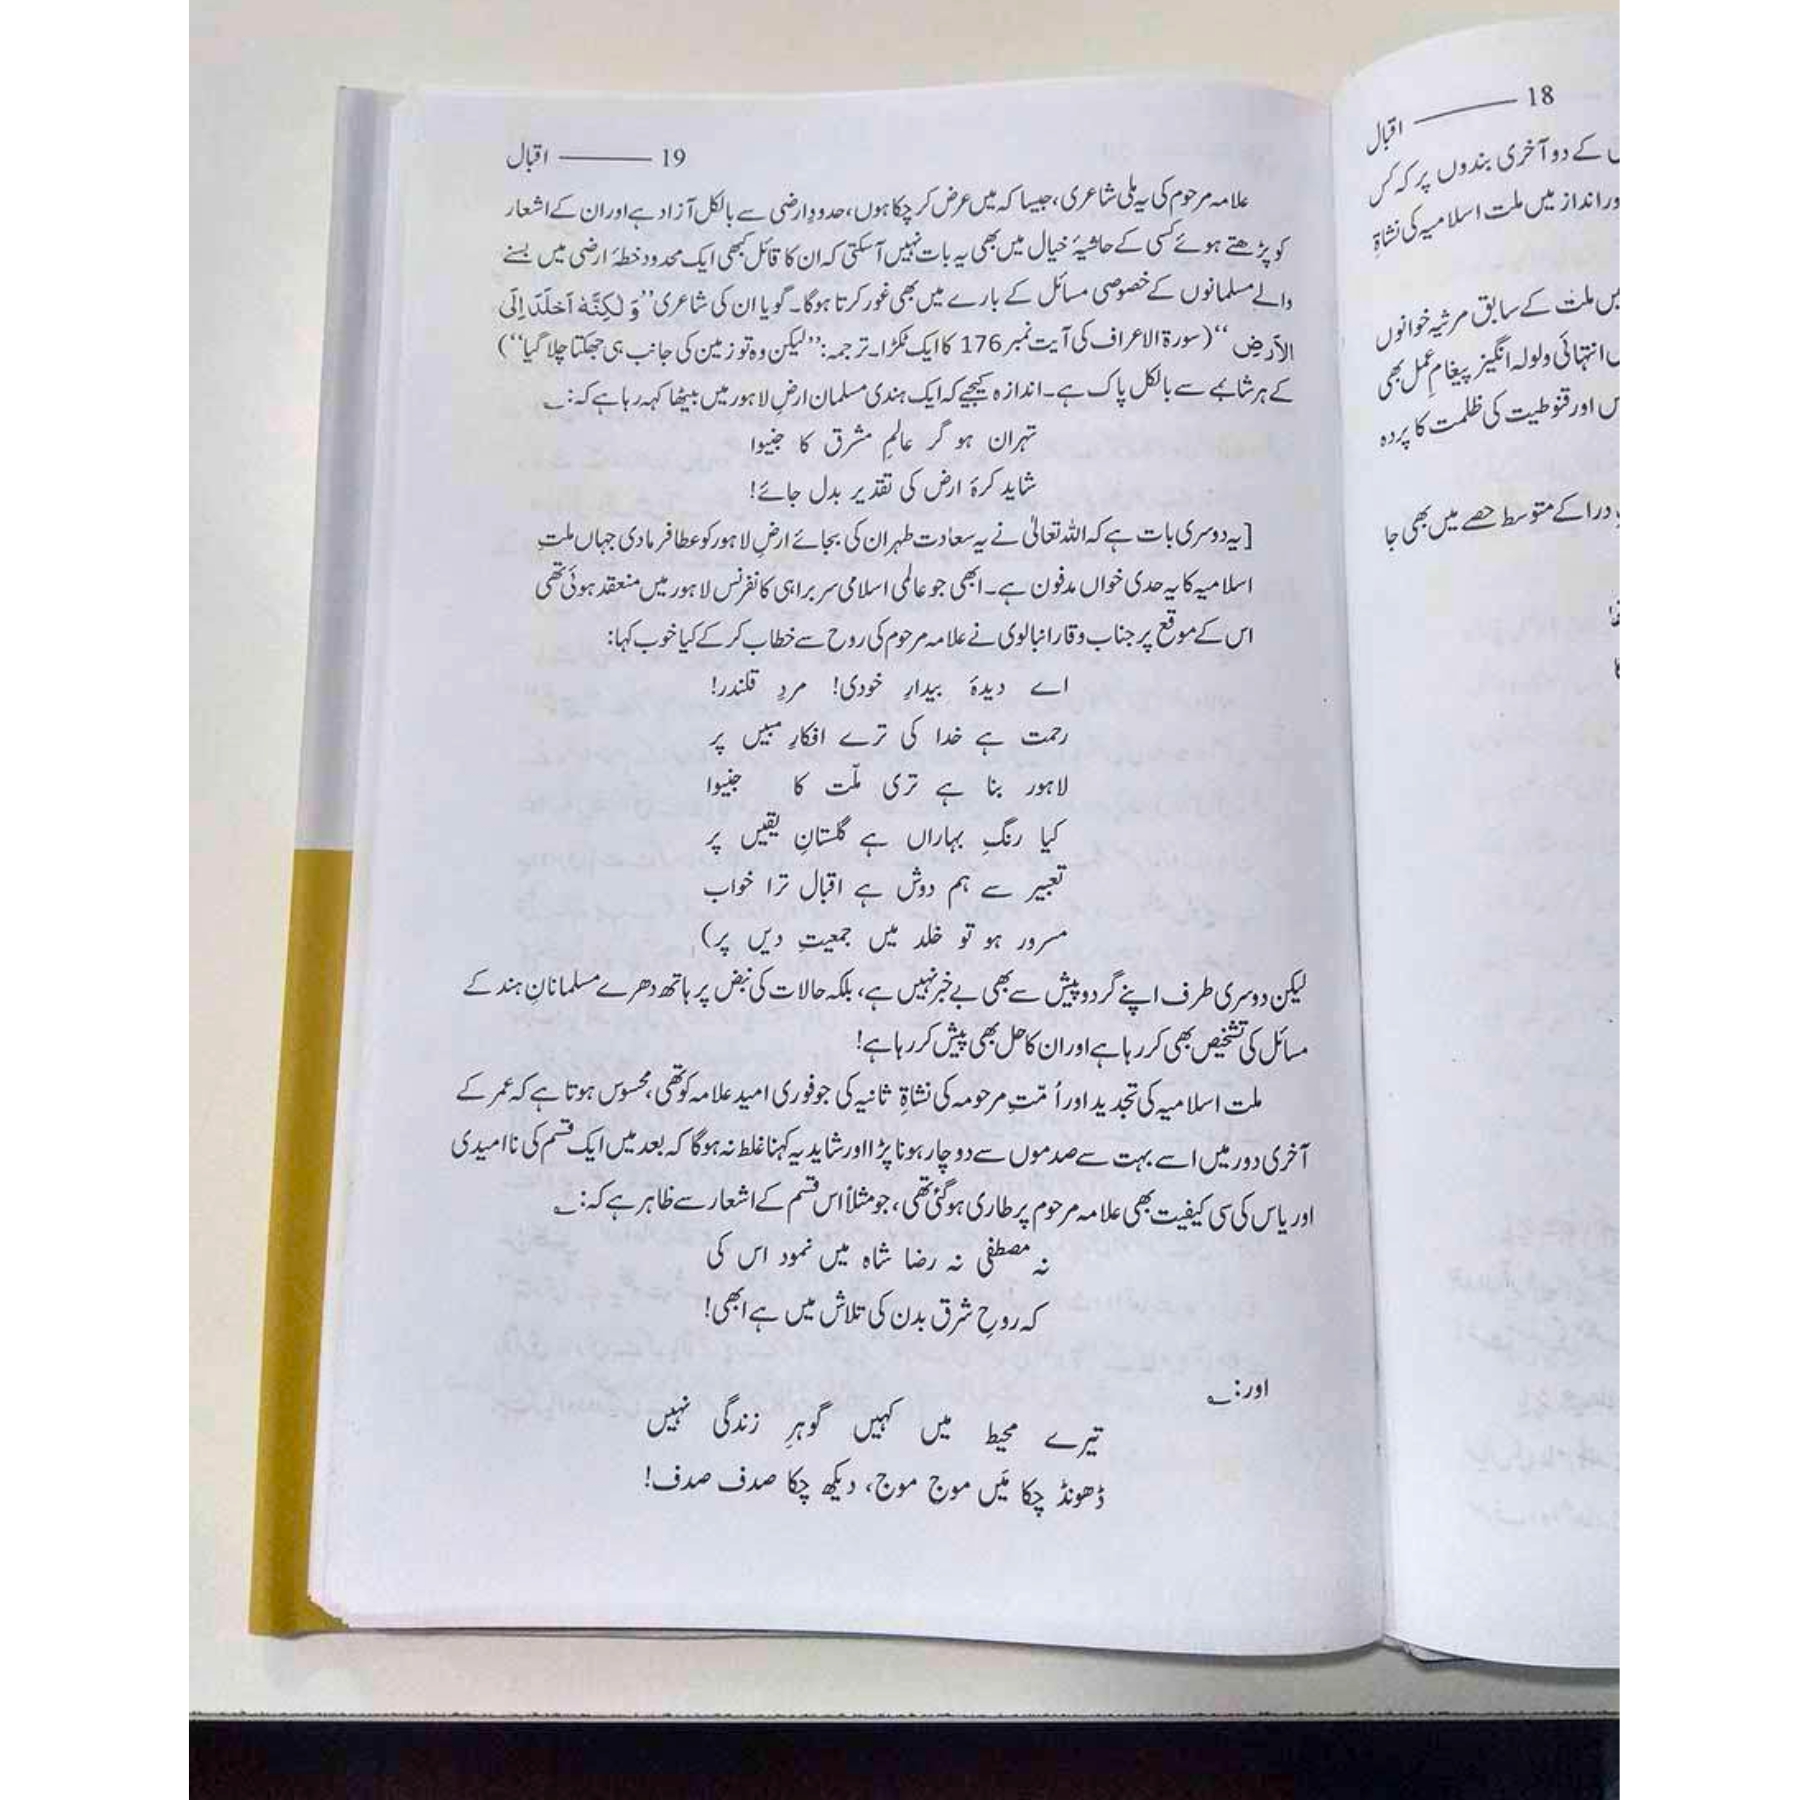 18 ——— اقبال
کے دو آخری بندوں پر کہ کس
انداز میں ملت اسلامیہ کی نشاۃِ
ملت کے سابق مرثیہ خوانوں
انتہائی ولولہ انگیز پیغامِ عمل بھی
اور قنوطیت کی ظلمت کا پردہ
درا کے متوسط حصے میں بھی جا
19 ——— اقبال
علامہ مرحوم کی یہ ملی شاعری، جیسا کہ میں عرض کر چکا ہوں، حدودِ ارضی سے بالکل آزاد ہے اور ان کے اشعار
کو پڑھتے ہوئے کسی کے حاشیۂ خیال میں بھی یہ بات نہیں آسکتی کہ ان کا قائل کبھی ایک محدود خطۂ ارضی میں بسنے
والے مسلمانوں کے خصوصی مسائل کے بارے میں بھی غور کرتا ہوگا۔ گویا ان کی شاعری ”وَ لٰکِنَّہٗ اَخلَدَ اِلَی
الاَرضِ“ (سورۃ الاعراف کی آیت نمبر 176 کا ایک ٹکڑا۔ ترجمہ: ”لیکن وہ تو زمین کی جانب ہی جھکتا چلا گیا“)
کے ہر شائبے سے بالکل پاک ہے۔ اندازہ کیجیے کہ ایک ہندی مسلمان ارضِ لاہور میں بیٹھا کہہ رہا ہے کہ: ؎
تہران ہو گر عالمِ مشرق کا جنیوا
شاید کرۂ ارض کی تقدیر بدل جائے!
[یہ دوسری بات ہے کہ اللہ تعالیٰ نے یہ سعادت طہران کی بجائے ارضِ لاہور کو عطا فرما دی جہاں ملتِ
اسلامیہ کا یہ حدی خواں مدفون ہے۔ ابھی جو عالمی اسلامی سربراہی کانفرنس لاہور میں منعقد ہوئی تھی
اس کے موقع پر جناب وقار انبالوی نے علامہ مرحوم کی روح سے خطاب کر کے کیا خوب کہا:
اے دیدۂ بیدارِ خودی! مردِ قلندر!
رحمت ہے خدا کی ترے افکارِ مبیں پر
لاہور بنا ہے تری ملّت کا جنیوا
کیا رنگِ بہاراں ہے گلستانِ یقیں پر
تعبیر سے ہم دوش ہے اقبال ترا خواب
مسرور ہو تو خلد میں جمعیتِ دیں پر)
لیکن دوسری طرف اپنے گردوپیش سے بھی بے خبر نہیں ہے، بلکہ حالات کی نبض پر ہاتھ دھرے مسلمانانِ ہند کے
مسائل کی تشخیص بھی کر رہا ہے اور ان کا حل بھی پیش کر رہا ہے!
ملت اسلامیہ کی تجدید اور اُمّتِ مرحومہ کی نشاۃِ ثانیہ کی جو فوری امید علامہ کو تھی، محسوس ہوتا ہے کہ عمر کے
آخری دور میں اسے بہت سے صدموں سے دوچار ہونا پڑا اور شاید یہ کہنا غلط نہ ہوگا کہ بعد میں ایک قسم کی ناامیدی
اور یاس کی سی کیفیت بھی علامہ مرحوم پر طاری ہوگئی تھی، جو مثلاً اس قسم کے اشعار سے ظاہر ہے کہ: ؎
نہ مصطفٰی نہ رضا شاہ میں نمود اس کی
کہ روحِ شرق بدن کی تلاش میں ہے ابھی!
اور: ؎
تیرے محیط میں کہیں گوہرِ زندگی نہیں
ڈھونڈ چکا مَیں موج موج، دیکھ چکا صدف صدف!